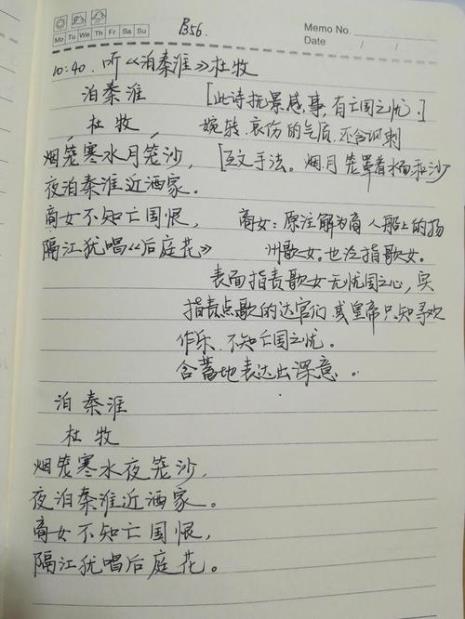 Mo Tu We Th Fr Sa Su
B56.
Memo No.
Date / /
10:40. 听《泊秦淮》杜牧
泊秦淮 [此诗抚景感事,有亡国之忧.]
杜牧, 婉转、哀伤的气质,还含讽刺
烟笼寒水月笼沙, [互文手法。烟月笼罩着水和沙
夜泊秦淮近酒家.
商女不知亡国恨, 商女:原注解为商人船上的扬
隔江犹唱《后庭花》 州歌女。也泛指歌女。
表面指责歌女无忧国之心,实
指责点歌的达官们或皇帝只知寻欢
作乐、不知亡国之忧。
含蓄地表达出深意。
泊秦淮
杜牧
烟笼寒水夜笼沙,
夜泊秦淮近酒家。
商女不知亡国恨,
隔江犹唱后庭花。